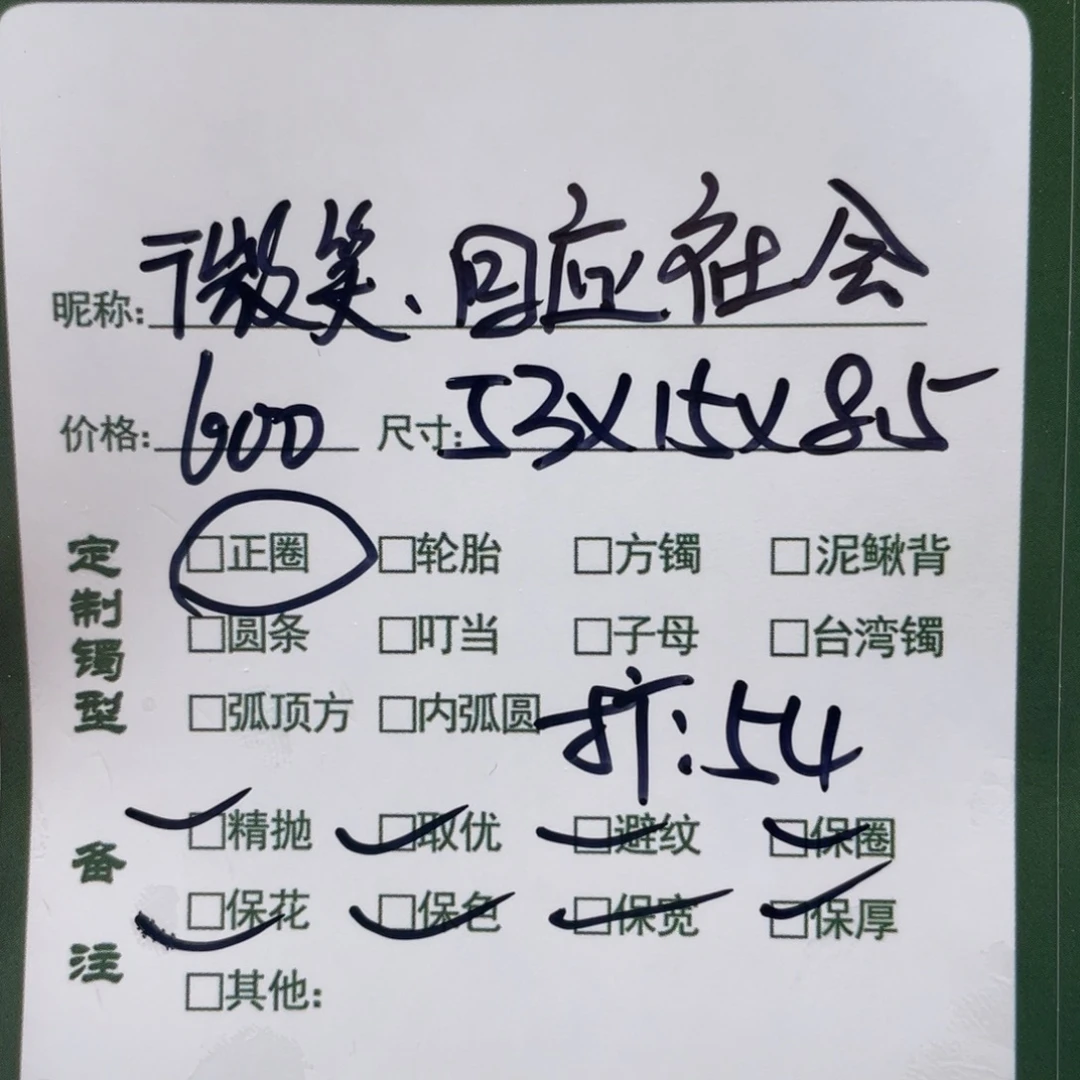 昵称:微笑、回应社会
价格:600 尺寸:53X15X8.5
定制镯型
□正圈 □轮胎 □方镯 □泥鳅背
□圆条 □叮当 □子母 □台湾镯
□弧顶方 □内弧圆 扩:54
备注
□精抛 □取优 □避纹 □保圈
□保花 □保色 □保宽 □保厚
□其他: